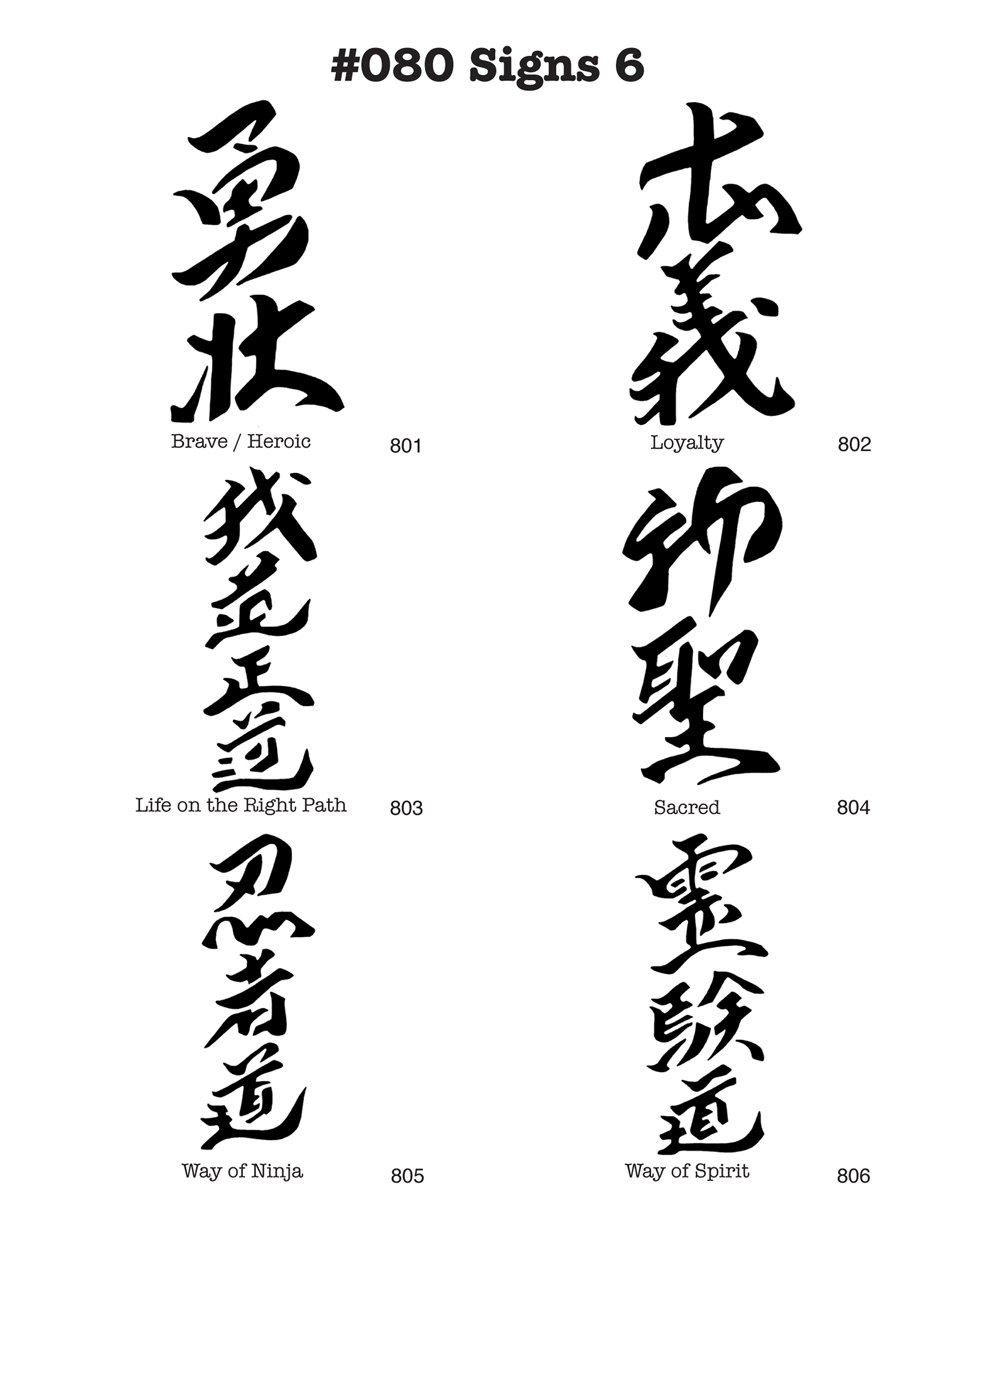 #080 Signs 6
勇壮
Brave / Heroic 801
義
Loyalty 802
正道
Life on the Right Path 803
神聖
Sacred 804
忍者道
Way of Ninja 805
霊験道
Way of Spirit 806